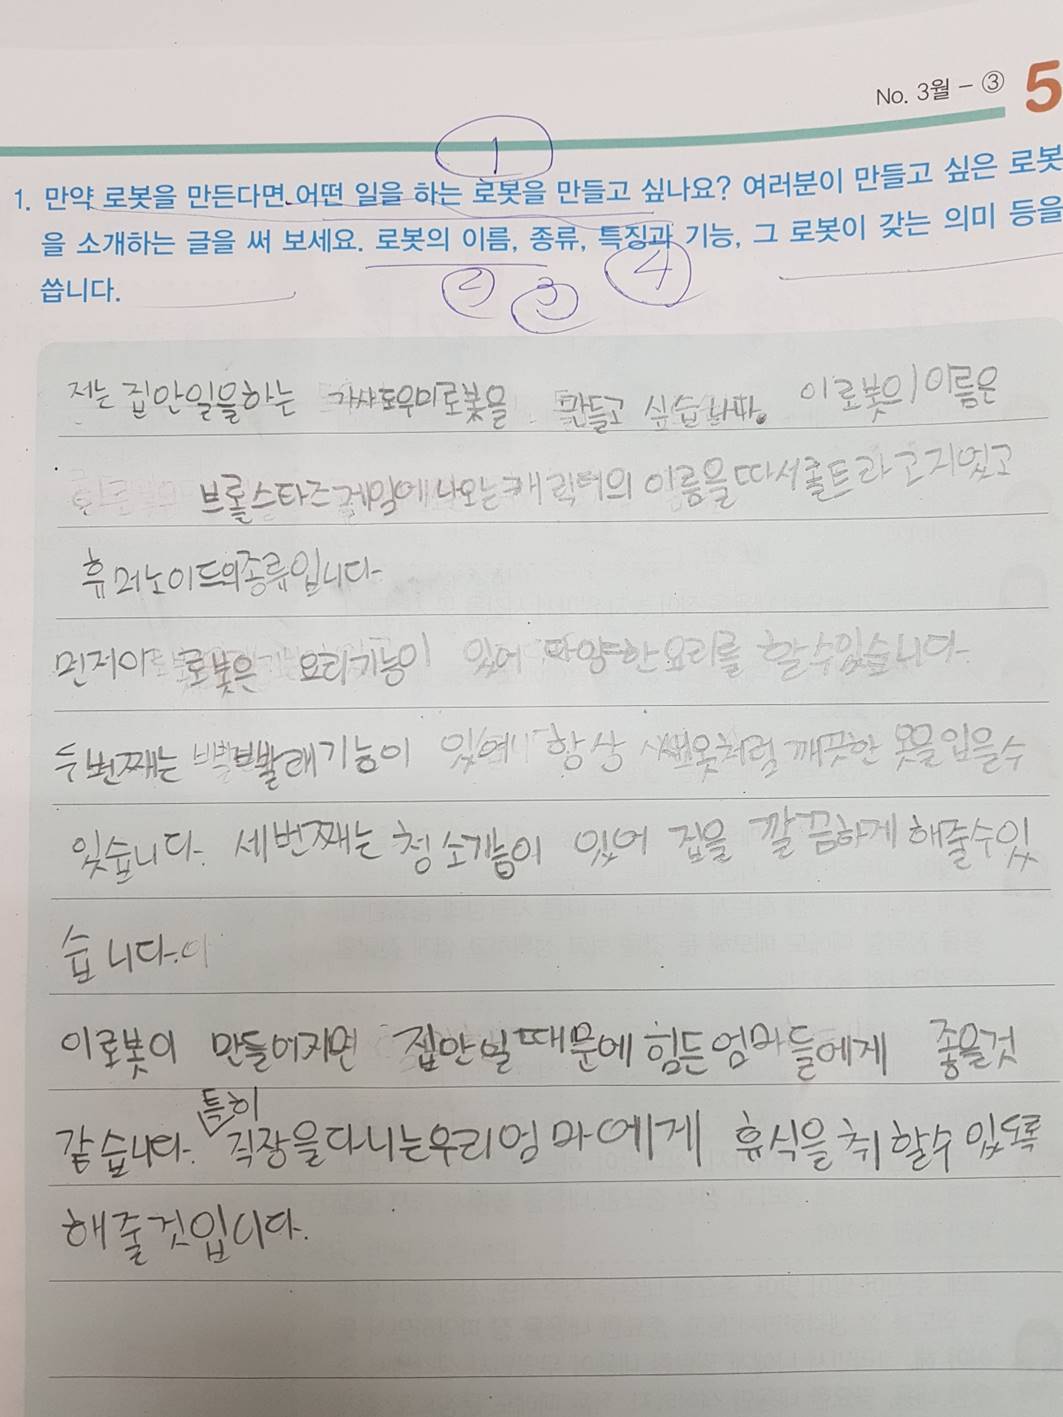 No. 3월 - ③ 5
1
1. 만약 로봇을 만든다면 어떤 일을 하는 로봇을 만들고 싶나요? 여러분이 만들고 싶은 로봇
을 소개하는 글을 써 보세요. 로봇의 이름, 종류, 특징과 기능, 그 로봇이 갖는 의미 등을
씁니다.
2 3 4
저는 집안일을하는 가사도우미로봇을 만들고 싶습니다. 이로봇의이름은
브롤스타즈게임에나오는캐릭터의 이름을따서콜트라고지었고
휴머노이드의종류입니다.
먼저이 로봇은 요리기능이 있어 다양한요리를 할수있습니다.
두번째는 빨래기능이 있어 항상 새옷처럼 깨끗한 옷을입을수
있습니다. 세번째는 청소기능이 있어 집을 깔끔하게 해줄수있
습니다.
이로봇이 만들어지면 집안일때문에힘든엄마들에게 좋을것
특히
같습니다. 직장을다니는우리엄마에게 휴식을취할수있도록
해줄것입니다.